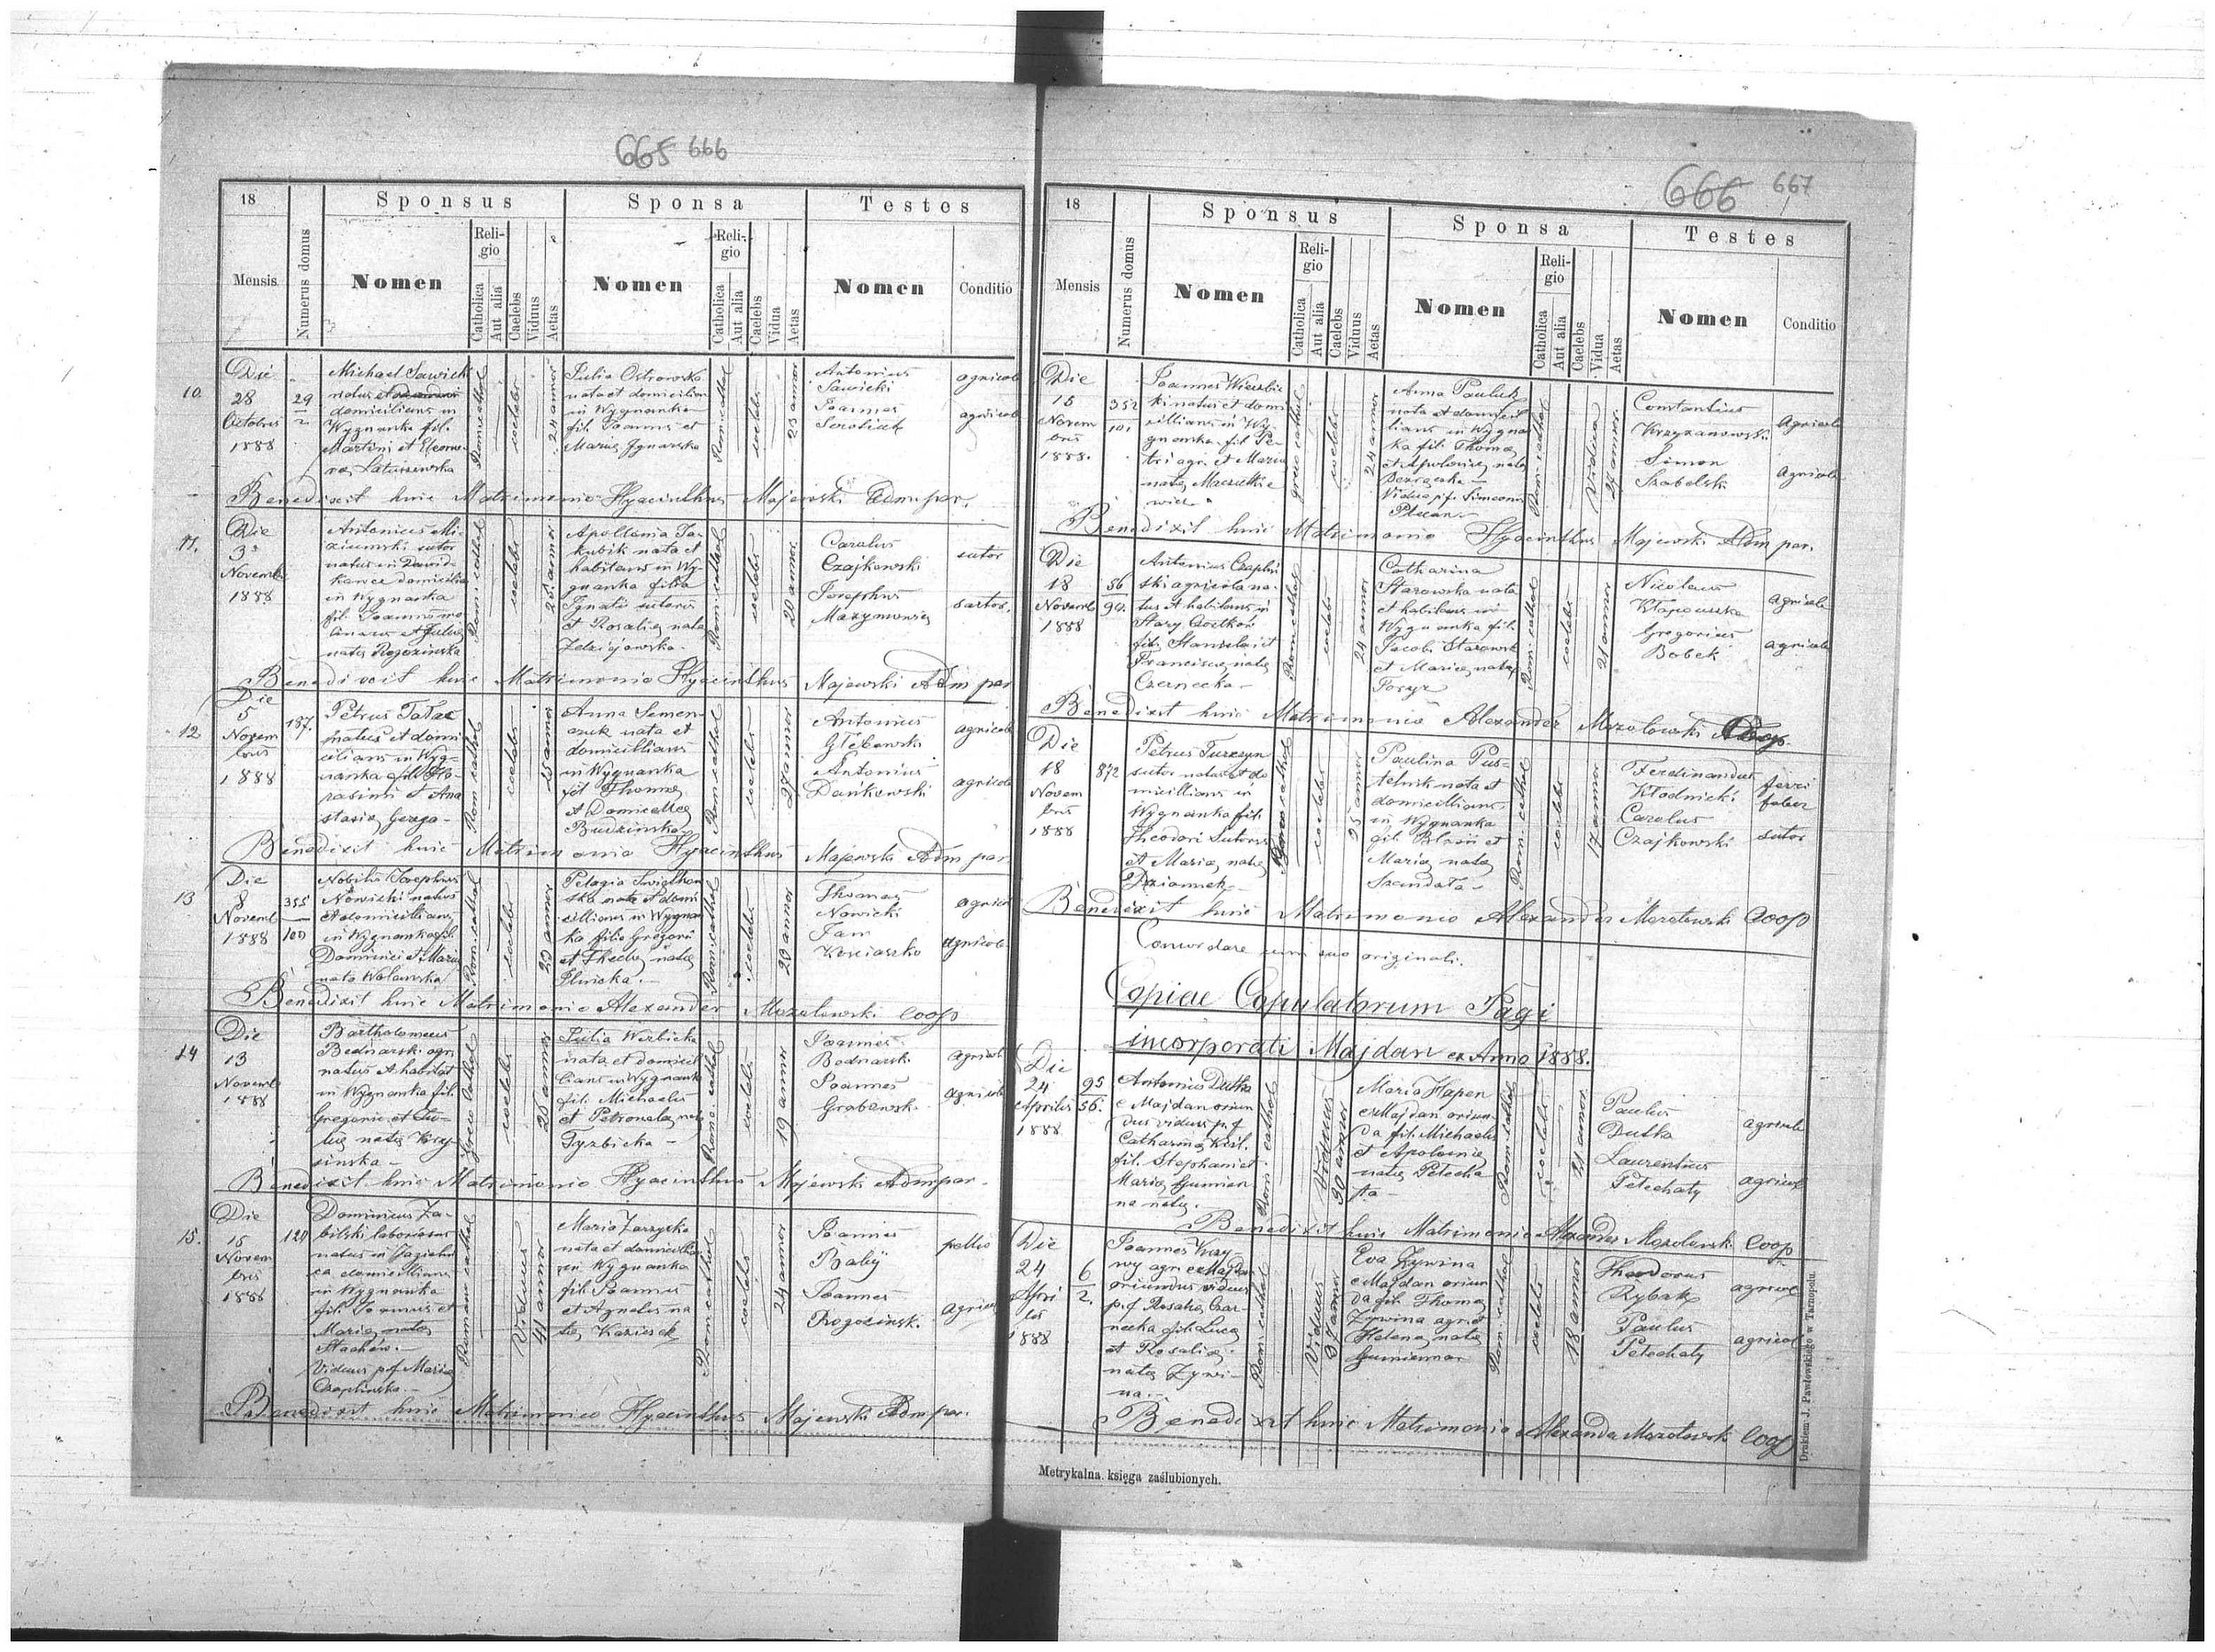 665 666
18
Sponsus
Sponsa
Testes
Mensis
Numerus domus
Nomen
Religio
Catholica
Aut alia
Caelebs
Viduus
Aetas
Nomen
Religio
Catholica
Aut alia
Caelebs
Vidua
Aetas
Nomen
Conditio
10.
Die
28
Octobris
1888
29
2
Michael Sawicki
natus et
domicilians in
Wygnanka fil.
Martini et Eleono-
rae Latuszewska
Rom. cathol
coelebs
24 annor
Julia Ostrowska
nata et domicilians
in Wygnanka
fil. Joannis et
Mariae Ignarska
Rom. cathol
coelebs
23 annor
Antonius
Sawicki
Joannes
agricola
agricola
Benedixit huic Matrimonio Hyacinthus Majewski Adm par.
11.
Die
3
Novemb
1888
Antonius Mi-
ziumski sutor
natus in Dawid-
kowce domicilians
in Wygnanka
fil. Joannis
et Julia
nata Rogozinska
Rom. cathol
coelebs
25 annor
Apollonia Ja-
kubik nata et
habitans in Wy-
gnanka filia
Ignatii sutoris
et Rosaliae nata
Rom. cathol
coelebs
20 annor
Carolus
Czajkowski
Josephus
sutor
sartor.
Benedixit huic Matrimonio Hyacinthus Majewski Adm par
12
Die
5
Novem
bris
1888
187.
Petrus Tatae
natus et domi
cilians in Wyg-
nanka fil. Flo-
rasimi et Ana
stasiae
Rom. cathol
coelebs
25 annor
Anna Semen-
czuk nata et
domicilians
in Wygnanka
fil. Thomae
et Domicellae
Budzinska
Rom. cathol
coelebs
27 annor
Antonius
Głębowski
Antonius
Dańkowski
agricola
agricola
Benedixit huic Matrimonio Hyacinthus Majewski Adm par.
13
Die
8
Novemb
1888
355
100
Nobilis Josephus
Nowicki natus
et domicilians
in Wygnanka fil.
Dominici et Maria
nata Wolowska
Rom. cathol
coelebs
Pelagia Swiątkow
ska nata et domi
cilians in Wygnan
ka filia Gregorii
et Theclae nata
Rom. cathol
coelebs
20 annor
Thomas
Nowicki
Jan
Kosciaszko
agricola
agricola
Benedixit huic Matrimonio Alexander Mozolowski coop
14
Die
13
Novemb
1888
Bartholomeus
Bednarski agri
natus et habitat
in Wygnanka fil.
Gregorii et Ju-
liae nata Kry-
sinska
Greco cathol
coelebs
Julia Werbicka
nata et domicil
ians in Wygnanka
fil. Michaelis
et Petronela nata
Tyrbicka
Rom. cathol
coelebs
19 annor
Joannes
Bednarski
Joannes
Grabowski
agricola
agricola
Benedixit huic Matrimonio Hyacinthus Majewski Adm par.
15.
Die
15
Novem
bris
1888
120
Dominicus Za-
bilski laboriosus
natus in Jagielni
ca domicilians
in Wygnanka
fil. Joannis et
Mariae nata
Stachów.
Viduus p.f. Maria
Czaplinska.
Romano cathol
Viduus
41 annor
Maria Zarzycka
nata et domicilians
in Wygnanka
fil. Joannis
et Agnetis na
ta
Rom cathol
coelebs
24 annor
Joannes
Babij
Joannes
Rogozinsk.
pellio
agricola
Benedixit huic Matrimonio Hyacinthus Majewski Adm par.
666 667
18
Sponsus
Sponsa
Testes
Mensis
Numerus domus
Nomen
Religio
Catholica
Aut alia
Caelebs
Viduus
Aetas
Nomen
Religio
Catholica
Aut alia
Caelebs
Vidua
Aetas
Nomen
Conditio
Die
15
Novem
bris
1888.
352
101
Joannes Wierzbic
ki natus et domi
cilians in Wy-
gnanka fil. Pe-
tri agr. et Maria
nata
greco cathol
coelebs
24 annor
Anna Pauluk
nata et domicil
ians in Wygnan
ka fil. Thomae
et Apoloniae nata
Vidua p.f. Simeonis
Rom. cathol
Vidua
Constantius
Krzyzanowski
Simon
Szabelski
Agricola
Agricola
Benedixit huic Matrimonio Hyacinthus Majewski Adm par.
Die
18
Novemb
1888
56
94.
Antonius Czaplin
ski agricola na-
tus et habitans in
Stary Czortków
fil. Stanislai et
Franciscae nata
Czernecka
Rom. cathol
coelebs
24 annor
Catharina
Starowska nata
et habitans in
Wygnanka fil.
Jacobi Starowsk
et Mariae nata
Foryz
Rom. cathol
coelebs
21 annor
Nicolaus
Gregorius
Bobek
agricola
agricola
Benedixit huic Matrimonio Alexander Mozolowski Coop.
Die
18
Novem
bris
1888
872
Petrus Turczyn
sutor natus et do
micilians in
Wygnanka fil.
Theodori Sutoris
et Mariae nata
coelebs
25 annor
Paulina Pus-
telnik nata et
domicilians
in Wygnanka
fil. Blasii et
Mariae nata
Szandała
Rom. cathol
coelebs
17 annor
Ferdinandus
Kłodnicki
Carolus
Czajkowski
ferri
faber
sutor
Benedixit huic Matrimonio Alexander Mozolowski Coop
Concordare cum suo originali.
Copiae Copulatorum Pagi
incorporati Majdan ex Anno 1888.
Die
24
Aprilis
1888
95
56.
Antonius Dutka
e Majdan oriun
dus viduus p.f.
Catharina
fil. Stephani et
Mariae Gumien
na nata.
Rom. cathol
Viduus
30 annor
Maria Hapen
e Majdan oriun
da fil. Michaelis
et Apoloniae
nata Petecha
ta
Rom cathol
coelebs
21 annor
Paulus
Dutka
Laurentius
Petechaty
agricola
agricol
Benedixit huic Matrimonio Alexander Mozolowski Coop
Die
24
Apri
lis
1888
6
2.
Joannes Krzy-
wy agri e Majdan
oriundus viduus
p.f. Rosalia Czar-
necka fil. Luca
et Rosalia
nata Zywi-
na.
Rom cathol
Viduus
Eva Zywina
e Majdan oriun
da fil. Thomae
Zywina agri et
Helena nata
Gumienna
Rom. cathol
coelebs
18 annor
Theodorus
Rybak
Paulus
Petechaty
agricol
agricol
Benedixit huic Matrimonio Alexander Mozolowski Coop
Metrykalna księga zaślubionych.
Drukiem J. Pawłowskiego w Tarnopolu.